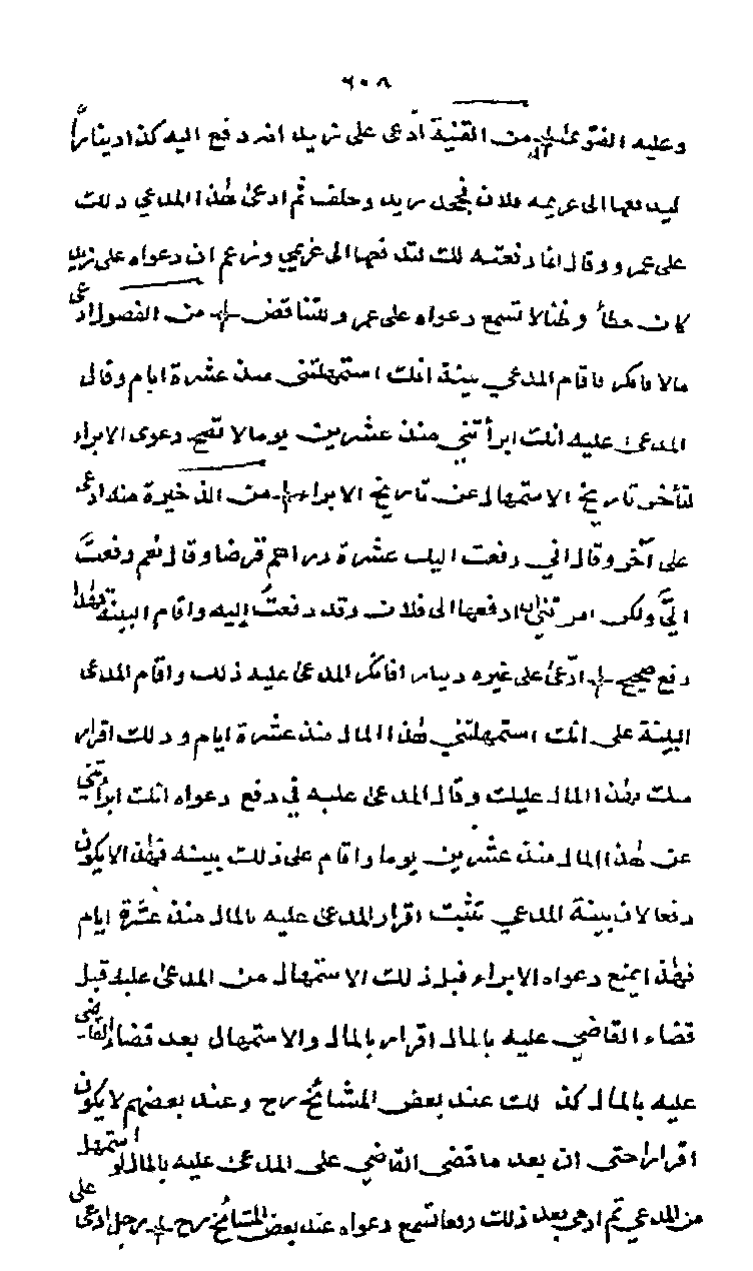 ٦٠٨
وعليه الفتوى من القنية ادّعى على زيد انه دفع اليه كذا ديناراً
ليدفعها الى غريمه فلان فجحد زيد وحلف ثم ادعى هٰذا المدعي ذلك
على عمرو وقال انما دفعته لك لتدفعها الى غريمي وزعم ان دعواه على زيد
كان خطأ وظنا لا تسمع دعواه على عمرو للتناقض من الفصول ادعى
مالا فانكر فاقام المدعي بينة انك استمهلتني منذ عشرة ايام وقال
المدعى عليه انك ابرأتني منذ عشرين يوما لا تصح دعوى الابراء
لتأخر تاريخ الاستمهال عن تاريخ الابراء من الذخيرة منه ادعى
على آخر وقال اني دفعت اليك عشرة دراهم قرضا وقال نعم دفعتَ
اليّ ولكن امرتني ان ادفعها الى فلان وقد دفعتُ إليه واقام البينة فهٰذا
دفع صحيح ادّعى على غيره دينار افانكر المدعى عليه ذلك واقام المدعى
البينة على انك استمهلتني هٰذا المال منذ عشرة ايام وذلك اقرار
منك بهٰذا المال عليك وقال المدعى عليه في دفع دعواه انك ابرأتني
عن هٰذا المال منذ عشرين يوما واقام على ذلك بينه فهٰذا لا يكون
دفعا لان بينة المدعي تثبت اقرار المدعى عليه بالمال منذ عشرة ايام
فهٰذا يمنع دعواه الابراء قبل ذلك الاستمهال من المدعى عليه قبل
قضاء القاضي عليه بالمال اقرار بالمال والاستمهال بعد قضاء القاضي
عليه بالمال كذلك عند بعض المشائخ رح وعند بعضهم لا يكون
اقرارا حتى ان بعد ما قضى القاضي على المدعى عليه بالمال لو استمهل
من المدعي ثم ادعى بعد ذلك دفعا تسمع دعواه عند بعض المشائخ رح رجل ادعى على